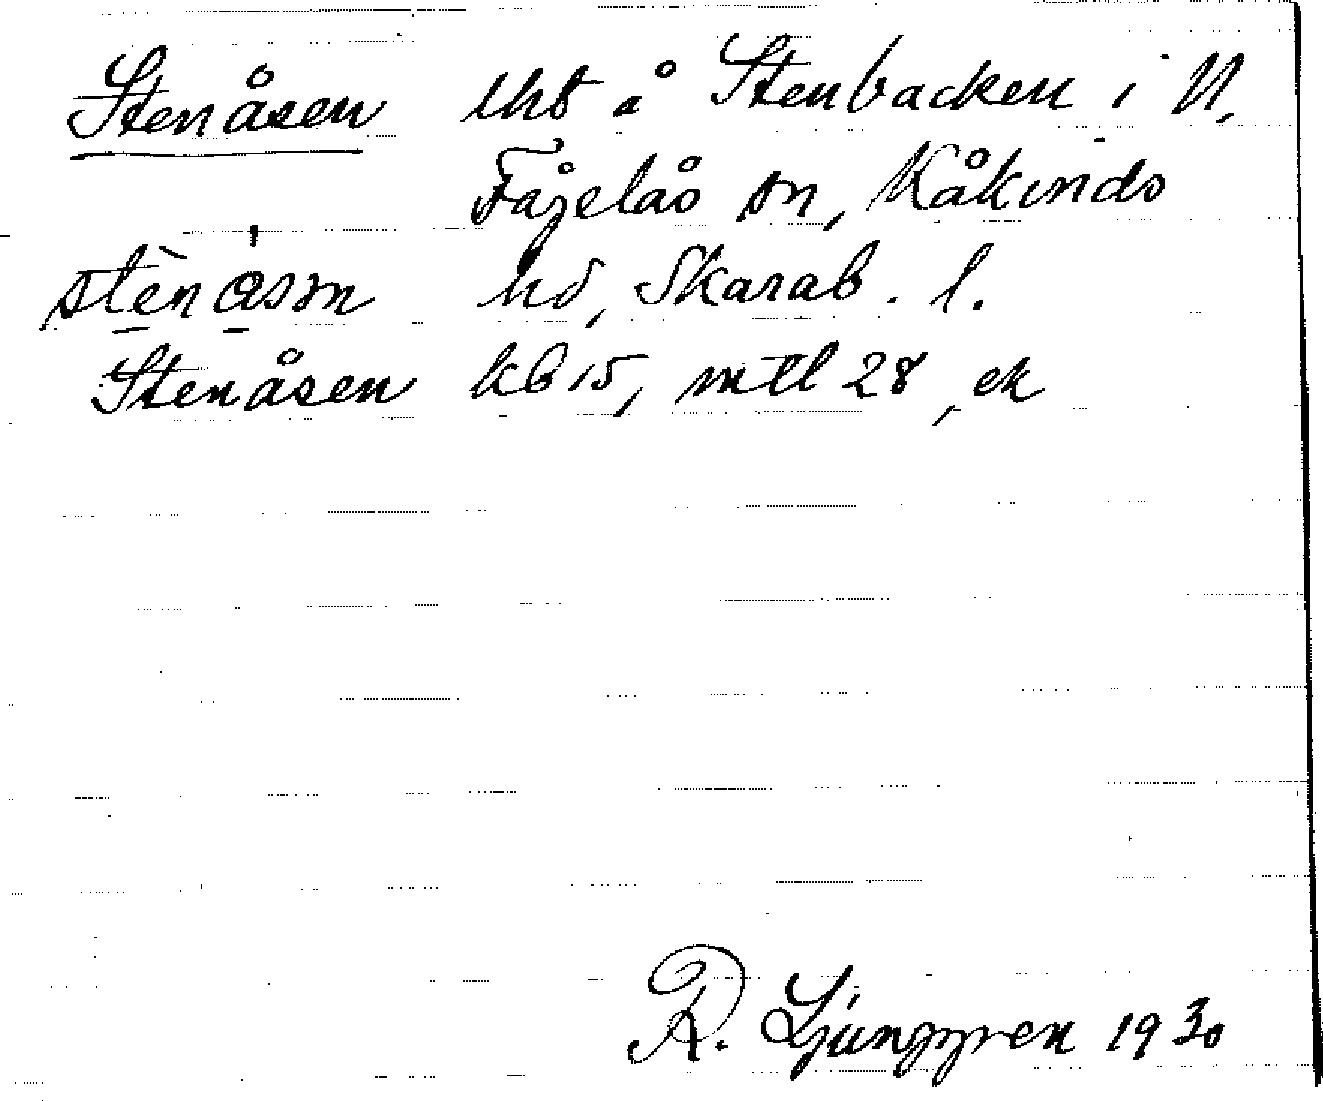 Stenåsen lht å Stenbacken i N.
Fågelås sn, Kåkinds
stènåsm hd, Skarab. l.
Stenåsen kb 15, mtl 28, ek
R. Ljunggren 1930